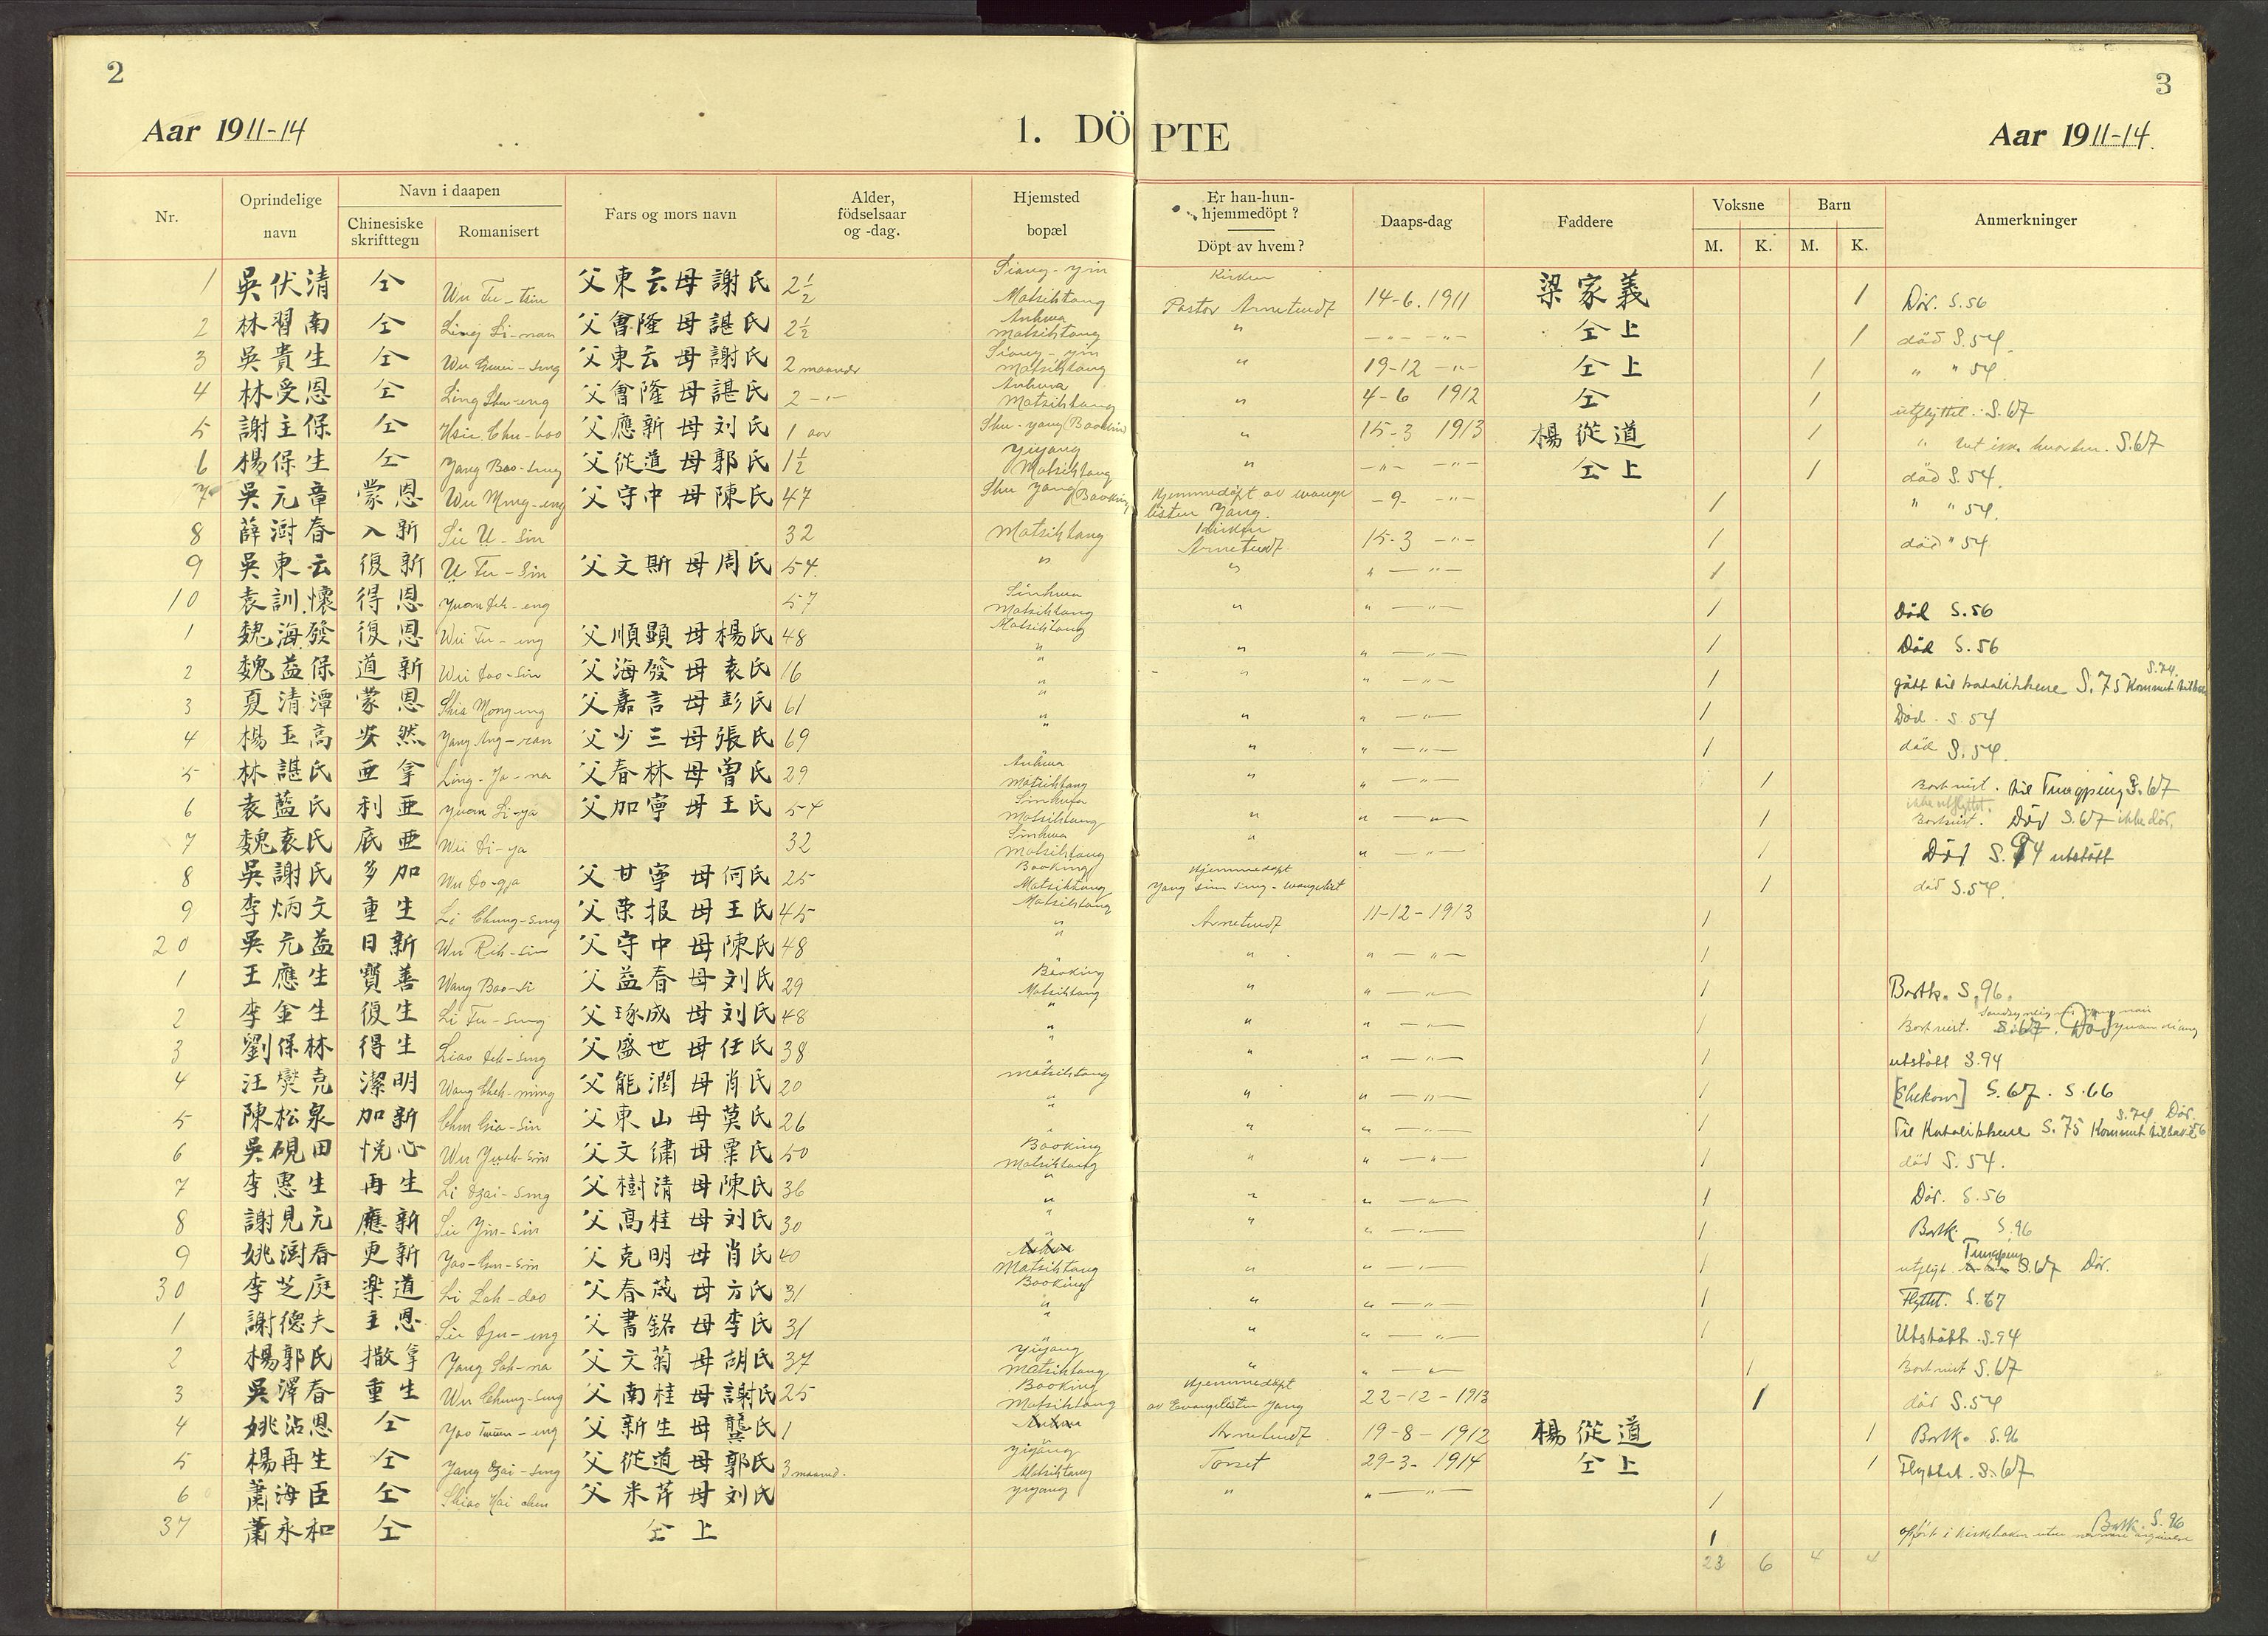 2
3
Aar 1911-14
1. DÖPTE
Aar 1911-14.
Nr.
Oprindelige navn
Navn i daapen
Chinesiske skrifttegn
Romanisert
Fars og mors navn
Alder, födselsaar og -dag.
Hjemsted
bopæl
Er han-hun-hjemmedöpt?
Döpt av hvem?
Daaps-dag
Faddere
Voksne
M. K.
Barn
M. K.
Anmerkninger
1 吳伏清 仝 Wu Fu-tsin 父東云母謝氏 2½ Siang-yin Matsihtang Kirken Pastor Arnetvedt 14-6.1911 梁家義 1 Död. S.56
2 林習南 仝 Ling Si-nan 父會隆母諶氏 2½ Anhwa Matsihtang " 仝上 1 död S.54.
3 吳貴生 仝 Wu Guei-sung 父東云母謝氏 2 maaneder Siang-yin Matsihtang " 19-12 -"- 仝上 1 " " 54.
4 林受恩 仝 Ling Shu-eng 父會隆母諶氏 2 -"- Anhwa Matsihtang " 4-6 1912 仝 1 utflyttet. S.67
5 謝主保 仝 Hsie Chu-bao 父應新母刘氏 1 aar Shu-yang " 15-3 1913 楊從道 1 " S.67
6 楊保生 仝 Yang Bao-sung 父從道母郭氏 1½ Yiyang Matsihtang " -"- -"- 仝上 1 död S.54.
7 吳元章 蒙恩 Wu Mung-eng 父守中母陳氏 47 Shu yang (Baoking Hjemmedöpt av evangelisten Yang. -9- -"- 1 " " 54.
8 薛澍春 入新 Sie U-sin 32 Matsihtang Kirken Arnetvedt 15-3 -"- 1 död " 54
9 吳東云 復新 U Fu-sin 父文斯母周氏 54. " " " -"- 1
10 袁訓懷 得恩 Yuan Deh-eng 57 Sinhwa Matsihtang " " -"- 1 Död S.56
1 魏海發 復恩 Wei Fu-eng 父順顕母楊氏 48 Matsihtang " " -"- 1 Död S.56
2 魏益保 道新 Wei Dao-sin 父海發母袁氏 16 " " " -"- 1 gått til katolikkene S.75 Kommet tilbake S.74.
3 夏清潭 蒙恩 Shia Mong-eng 父嘉言母彭氏 61 " " " -"- 1 Död. S.54
4 楊玉高 安然 Yang Ang-ran 父少三母張氏 69 " " " -"- 1 död S.54.
5 林諶氏 亜拿 Ling-Ja-na 父春林母曾氏 29 Anhwa Matsihtang " " -"- 1 Bortreist. til Tungping S.67
6 袁藍氏 利亜 Yuan Li-ya 父加寧母王氏 54 Sinhwa Matsihtang " " -"- 1 ikke utflyttet. Bortreist. Död S.67 ikke död.
7 魏袁氏 底亜 Wei Di-ya 32 Sinhwa Matsihtang " " -"- 1 Död S.94 utstött
8 吳謝氏 多加 Wu Do-gja 父甘寧母何氏 25 Baoking Matsihtang Hjemmedöpt Yang Sinn Sung-evangelist 1 död S.54.
9 李炳文 重生 Li Chung-sung 父荣报母王氏 45 Matsihtang Arnetvedt 11-12-1913 1
20 吳元益 日新 Wu Reh-sin 父守中母陳氏 48 " " " -"- 1
1 王應生 寶善 Wang Bao-si 父益春母刘氏 29 Baoking Matsihtang " " -"- 1 Bortk. S.96.
2 李金生 復生 Li Fu-sung 父琢成母刘氏 48 " " " -"- 1 Bortreist. S.67. Död
3 劉保林 得生 Liao Deh-sung 父盛世母任氏 38 " " " -"- 1 utstött S.94
4 汪爕克 潔明 Wang Cheh-ming 父能潤母肖氏 20 Matsihtang " " -"- 1 [Chekow] S.67. S.66
5 陳松泉 加新 Chen Gia-sin 父東山母莫氏 26 " " " -"- 1 Til Katolikkene S.75 Kommet tilbake S.74 Död. 56
6 吳硯田 悦心 Wu Yueh-sin 父文繡母粟氏 50 Baoking Matsihtang " " -"- 1 död S.54.
7 李惠生 再生 Li Dzai-sung 父樹清母陳氏 36 " " " -"- 1 Död. S.56
8 謝見元 應新 Sie Yin-sin 父高桂母刘氏 30 " " " -"- 1 Bortk. S.96
9 姚澍春 更新 Yao-Gen-sin 父克明母肖氏 40 Anhwa Matsihtang " " -"- 1 utflyt Tungping S.67 Död.
30 李芝庭 楽道 Li Loh-dao 父春茂母方氏 31 Baoking " " " -"- 1 Flyttet. S.67
1 謝德夫 主恩 Sie Dju-eng 父書銘母李氏 31 " " " -"- 1 Utstött S.94
2 楊郭氏 撒拿 Yang Sah-na 父文菊母胡氏 37 Yiyang Matsihtang " " -"- 1 Bortreist S.67
3 吳澤春 重生 Wu Chung-sung 父南桂母謝氏 25 Baoking Matsihtang Hjemmedöpt av Evangelisten Yang 22-12-1913 1 död S.54
4 姚沾恩 仝 Yao -eng 父新生母龔氏 1 Anhwa Arnetvedt 19-8-1912 楊從道 1 Bortk. S.96
5 楊再生 仝 Yang Dzai-sung 父從道母郭氏 3 maaned. Yiyang Matsihtang Torset 29-3-1914 仝上 1 Flyttet. S.67
6 蕭海臣 仝 Shiao Hai chen 父釆芹母刘氏 Yiyang " " -"- 1
37 蕭永和 仝 仝上 1 Bortk. S.96 opfört i kirkeboken uten nærmere angivelse
23 6 4 4